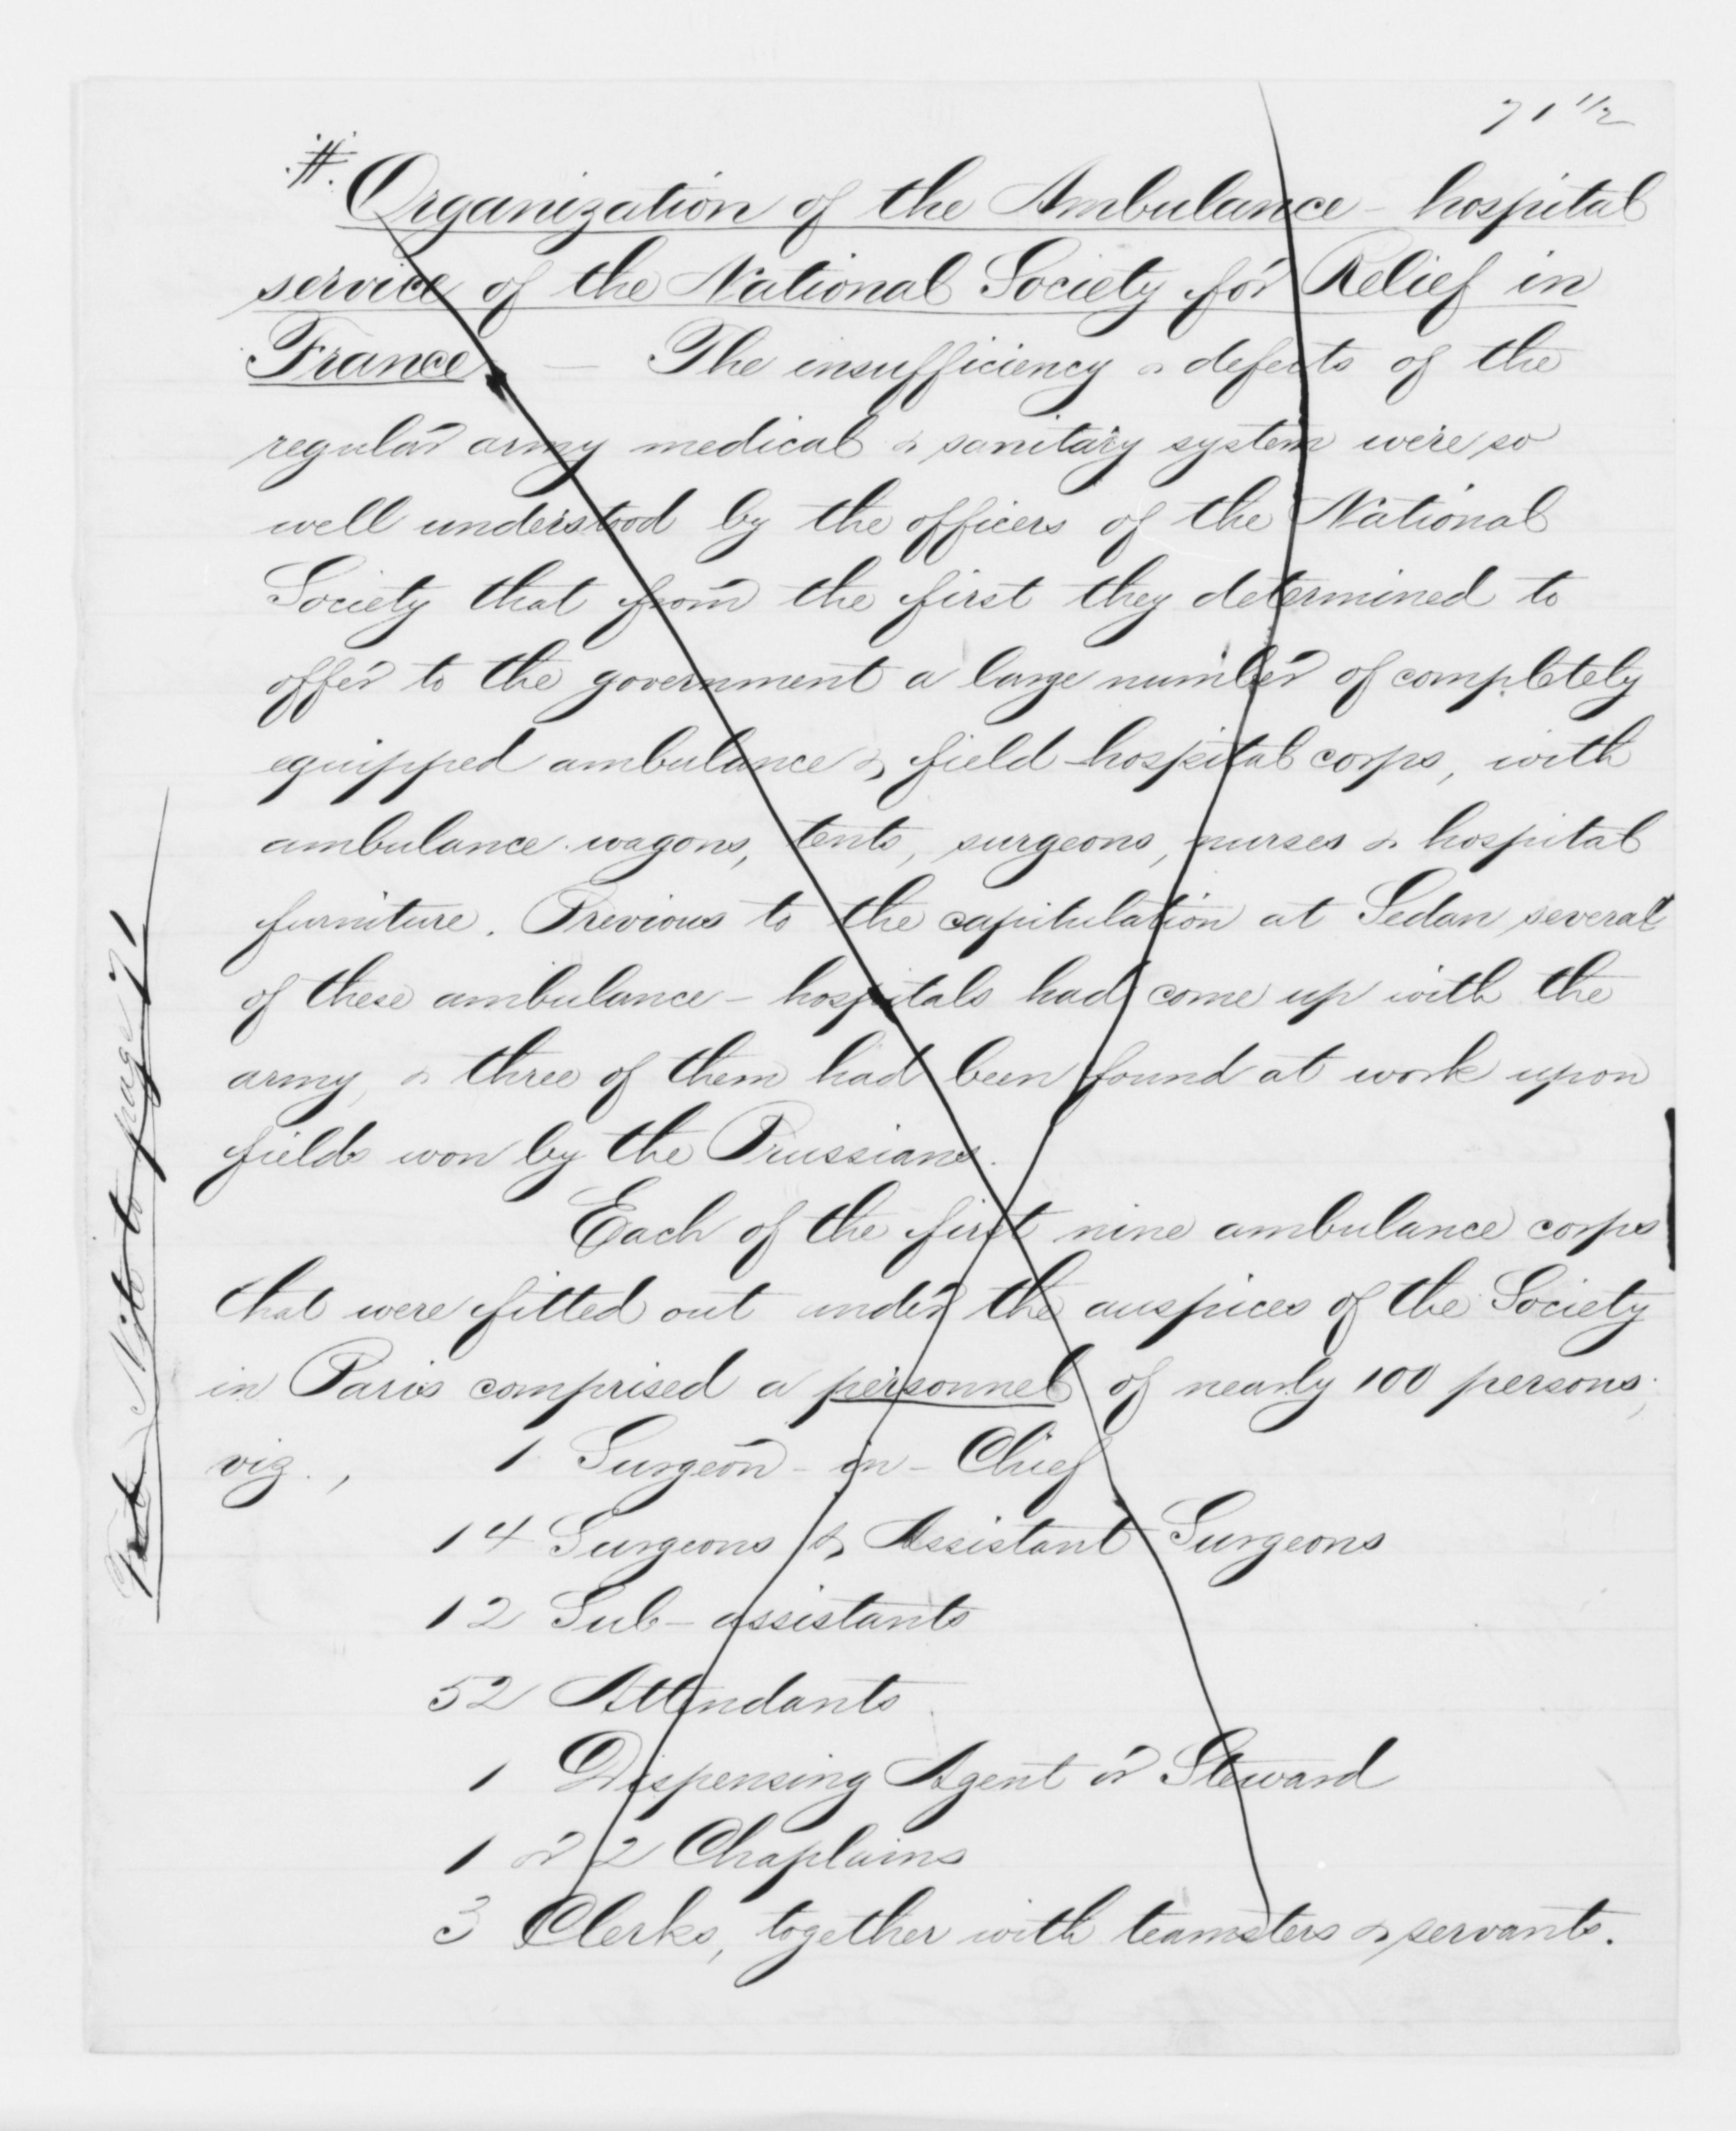 71 1/2
#. Organization of the Ambulance - hospital
service of the National Society for Relief in
France. — The insufficiency & defects of the
regular army medical & sanitary system were so
well understood by the officers of the National
Society that from the first they determined to
offer to the government a large number of completely
equipped ambulance & field-hospital corps, with
ambulance wagons, tents, surgeons, nurses & hospital
furniture. Previous to the capitulation at Sedan several
of these ambulance - hospitals had come up with the
army, & three of them had been found at work upon
fields won by the Prussians.
Each of the first nine ambulance corps
that were fitted out under the auspices of the Society
in Paris comprised a personnel of nearly 100 persons;
viz., 1 Surgeon - in - Chief
14 Surgeons & Assistant Surgeons
12 Sub - assistants
52 Attendants
1 Dispensing Agent or Steward
1 or 2 Chaplains
3 Clerks, together with teamsters & servants.
Note to page 71